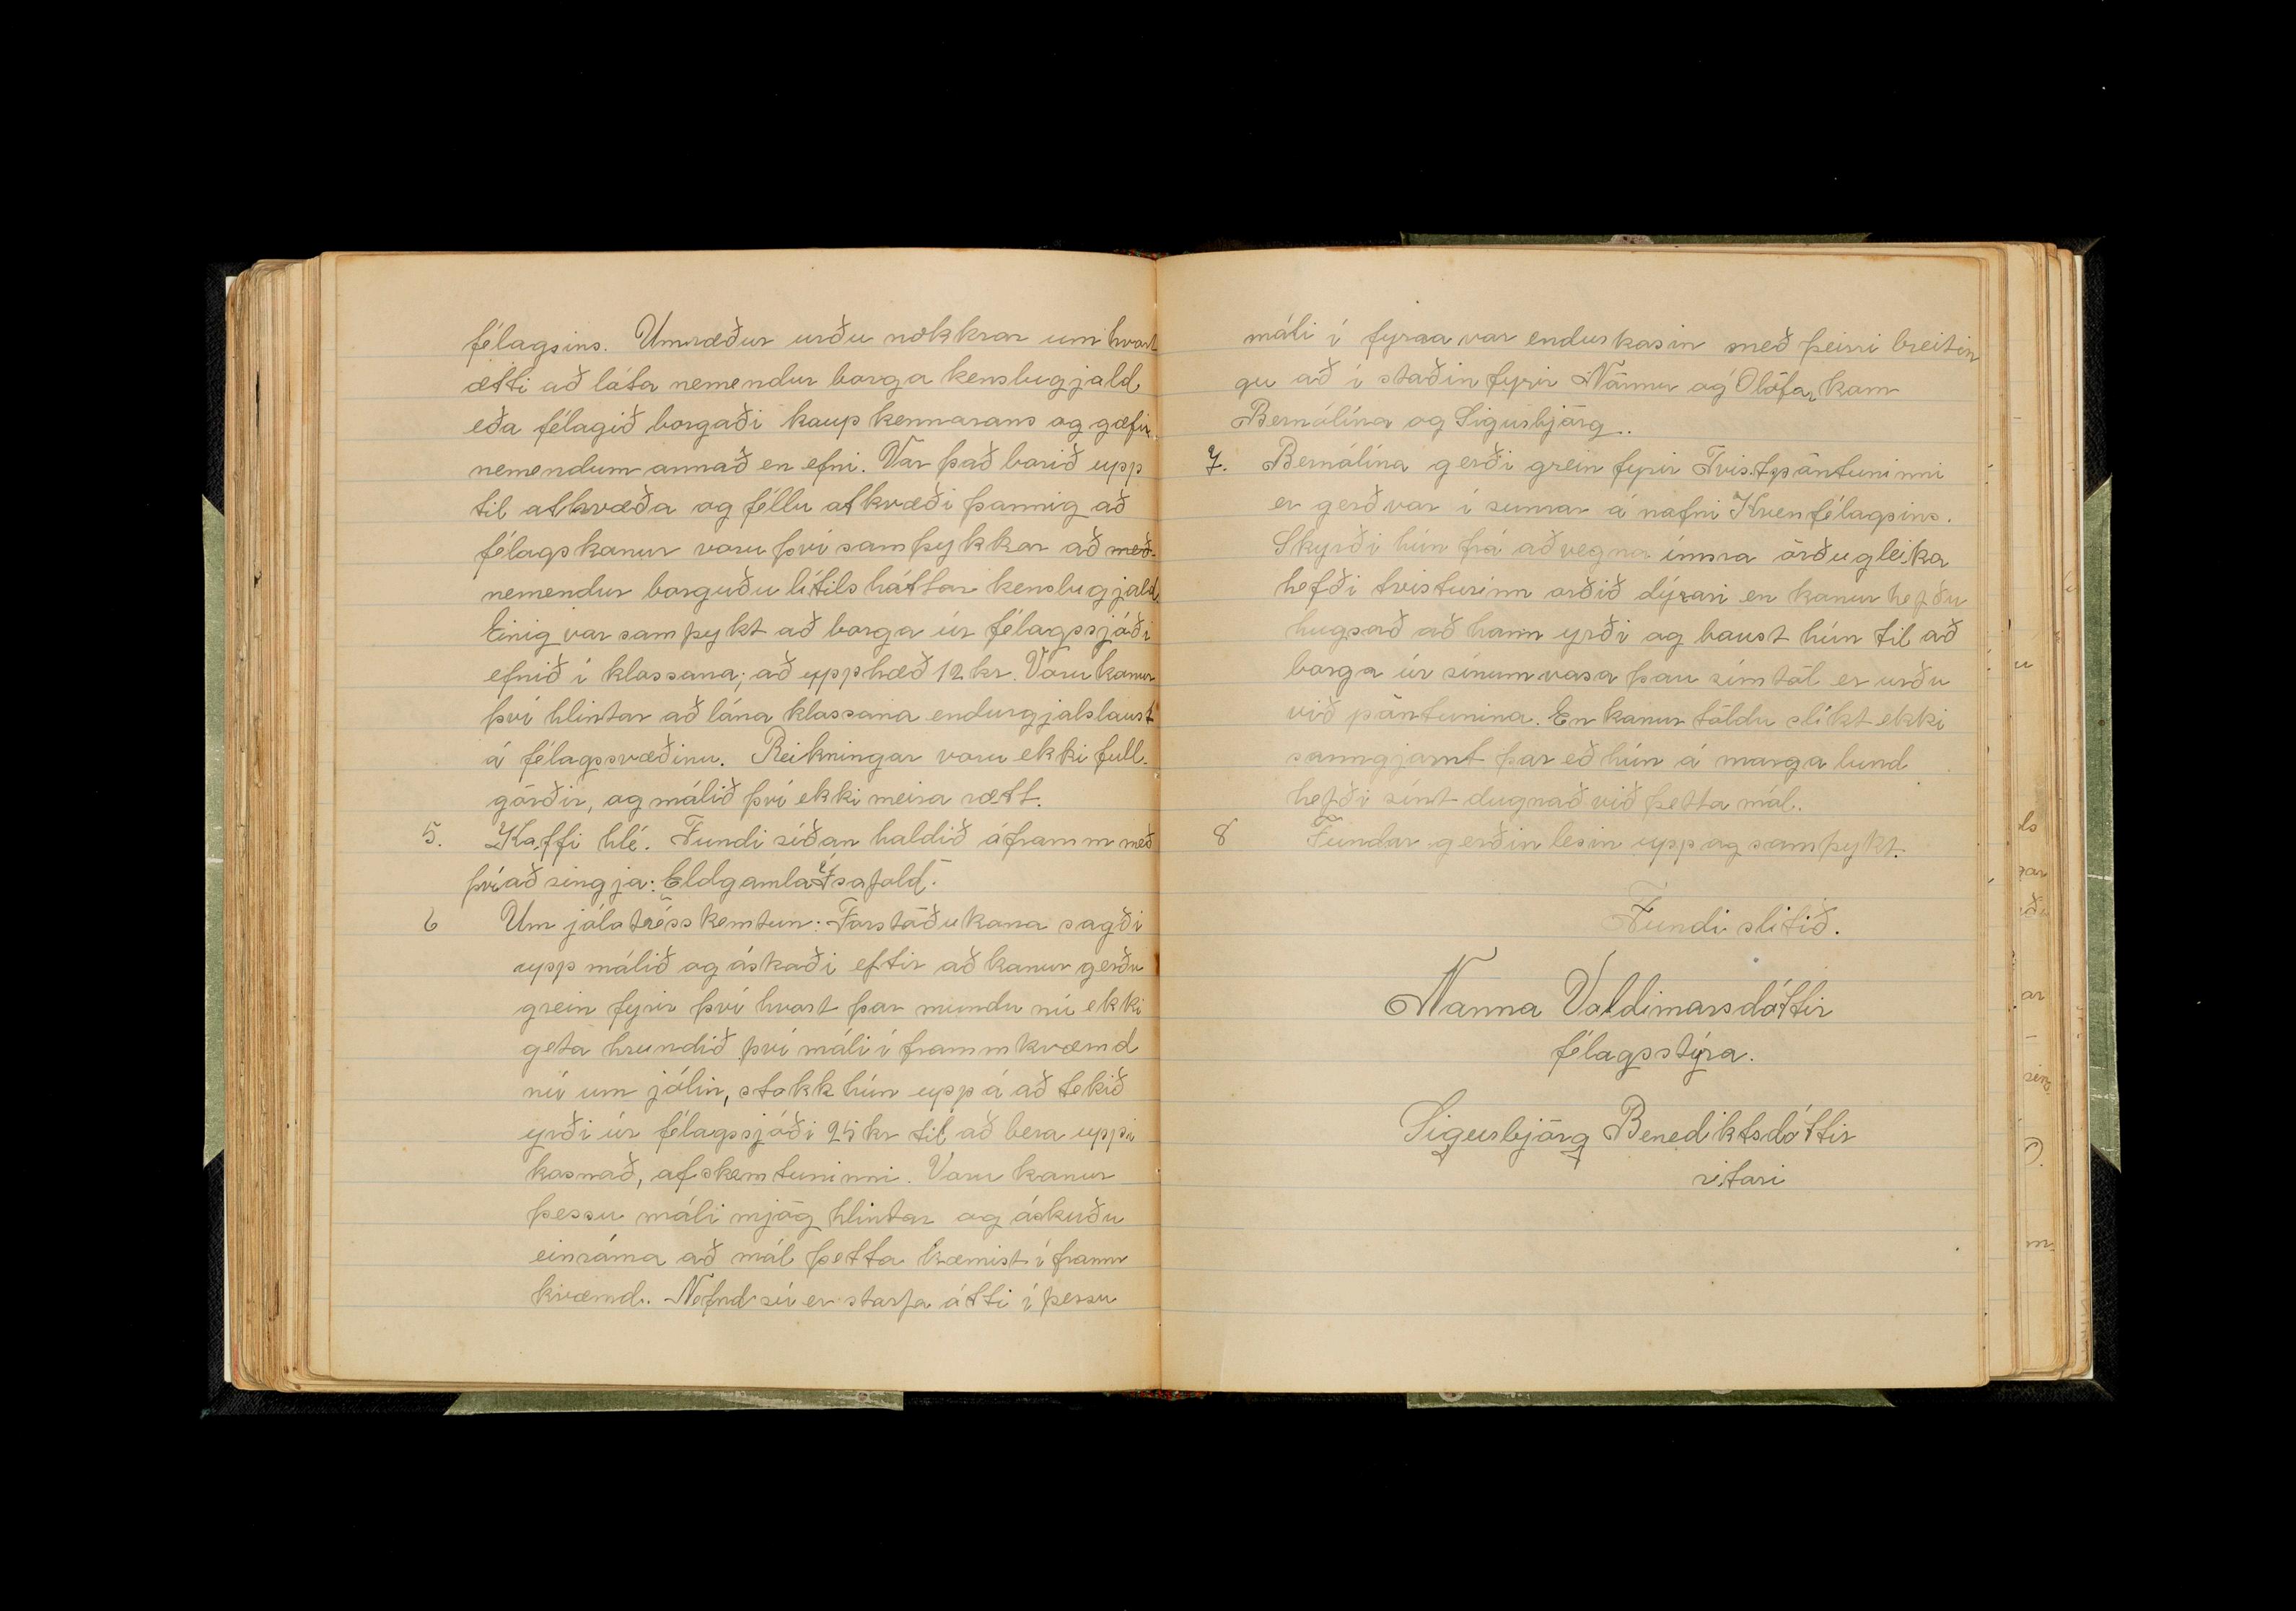 félagsins. Umræður urðu nokkrar um hvort
ætti að láta nemendur borga kenslugjald
eða félagið borgaði kaup kennarans og gæfu
nemendum annað en efni. Var það borið upp
til atkvæða og féllu atkvæði þannig að
félagskonur voru því samþykkar að með-
nemendur borguðu lítilsháttar kenslugjald.
Einig var samþykt að borga úr félagssjóði
efnið í klossana; að upphæð 12 kr. Voru konur
því hlintar að lána klossana endurgjalslaust
á félagssvæðinu. Reikningar voru ekki full-
görðir, og málið því ekki meira rætt.
5. Kaffi hlé. Fundi síðan haldið áframm með
því að singja: Eldgamla Ísafold.
6 Um jólatrésskemtun: Forstöðukona sagði
upp málið og óskaði eftir að konur gerðu
grein fyrir því hvort þær mundu nú ekki
geta hrundið því máli í frammkvæmd
nú um jólin, stakk hún uppá að tekið
yrði úr félagssjóði 25 kr til að bera uppi
kosnað, af skemtuninni. Voru konur
þessu máli mjög hlintar og óskuðu
einróma að mál þetta kæmist í framm
kvæmd. Nefnd sú er starfa átti í þessu
máli í fyrra var endurkosin með þeirri breitin
gu að í staðin fyrir Nönnu og Ólöfu, kom
Bernólína og Sigurbjörg.
7. Bernólína gerði grein fyrir Tvistpöntuninni
er gerð var í sumar á nafni Kvenfélagsins.
Skyrði hún frá að vegna ímsra örðugleika
hefði tvisturinn orðið dýrari en konur hefðu
hugsað að hann yrði og baust hún til að
borga úr sínum vasa þau símtöl er urðu
við pöntunina. En konur töldu slíkt ekki
sanngjarnt þar eð hún á marga lund
hefði sínt dugnað við þetta mál.
8 Fundar gerðin lesin upp og samþykt.
Fundi slitið.
Nanna Valdimarsdóttir
félagsstýra.
Sigurbjörg Benediktsdóttir
ritari